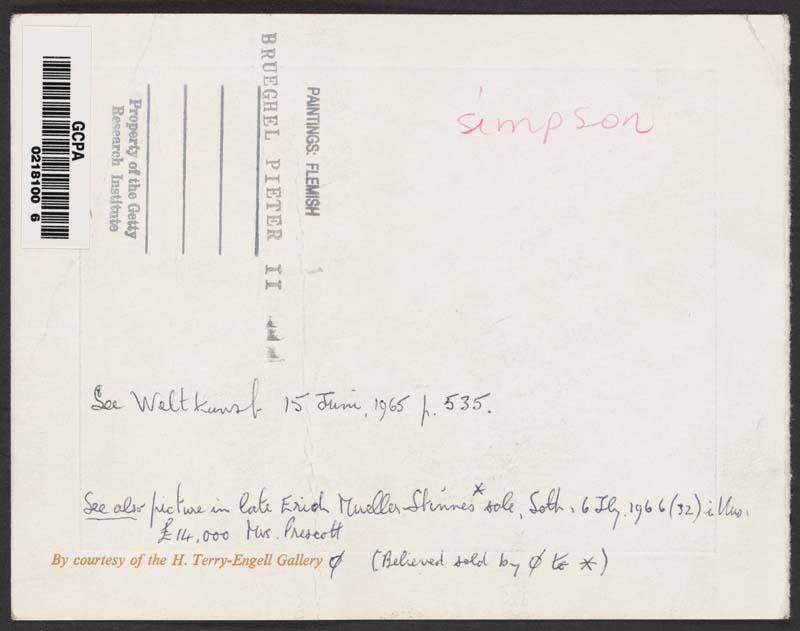 GCPA
0218100 6
Property of the Getty
Research Institute
BRUEGHEL PIETER II
PAINTINGS: FLEMISH
simpson
See Weltkunst 15 Juni, 1965 p. 535.
See also picture in late Erich Mueller-Stinnes* sale, Soth. 6 Jly. 1966 (32) illus.
£14,000 Mrs. Prescott
By courtesy of the H. Terry-Engell Gallery ∅ (Believed sold by ∅ to *)